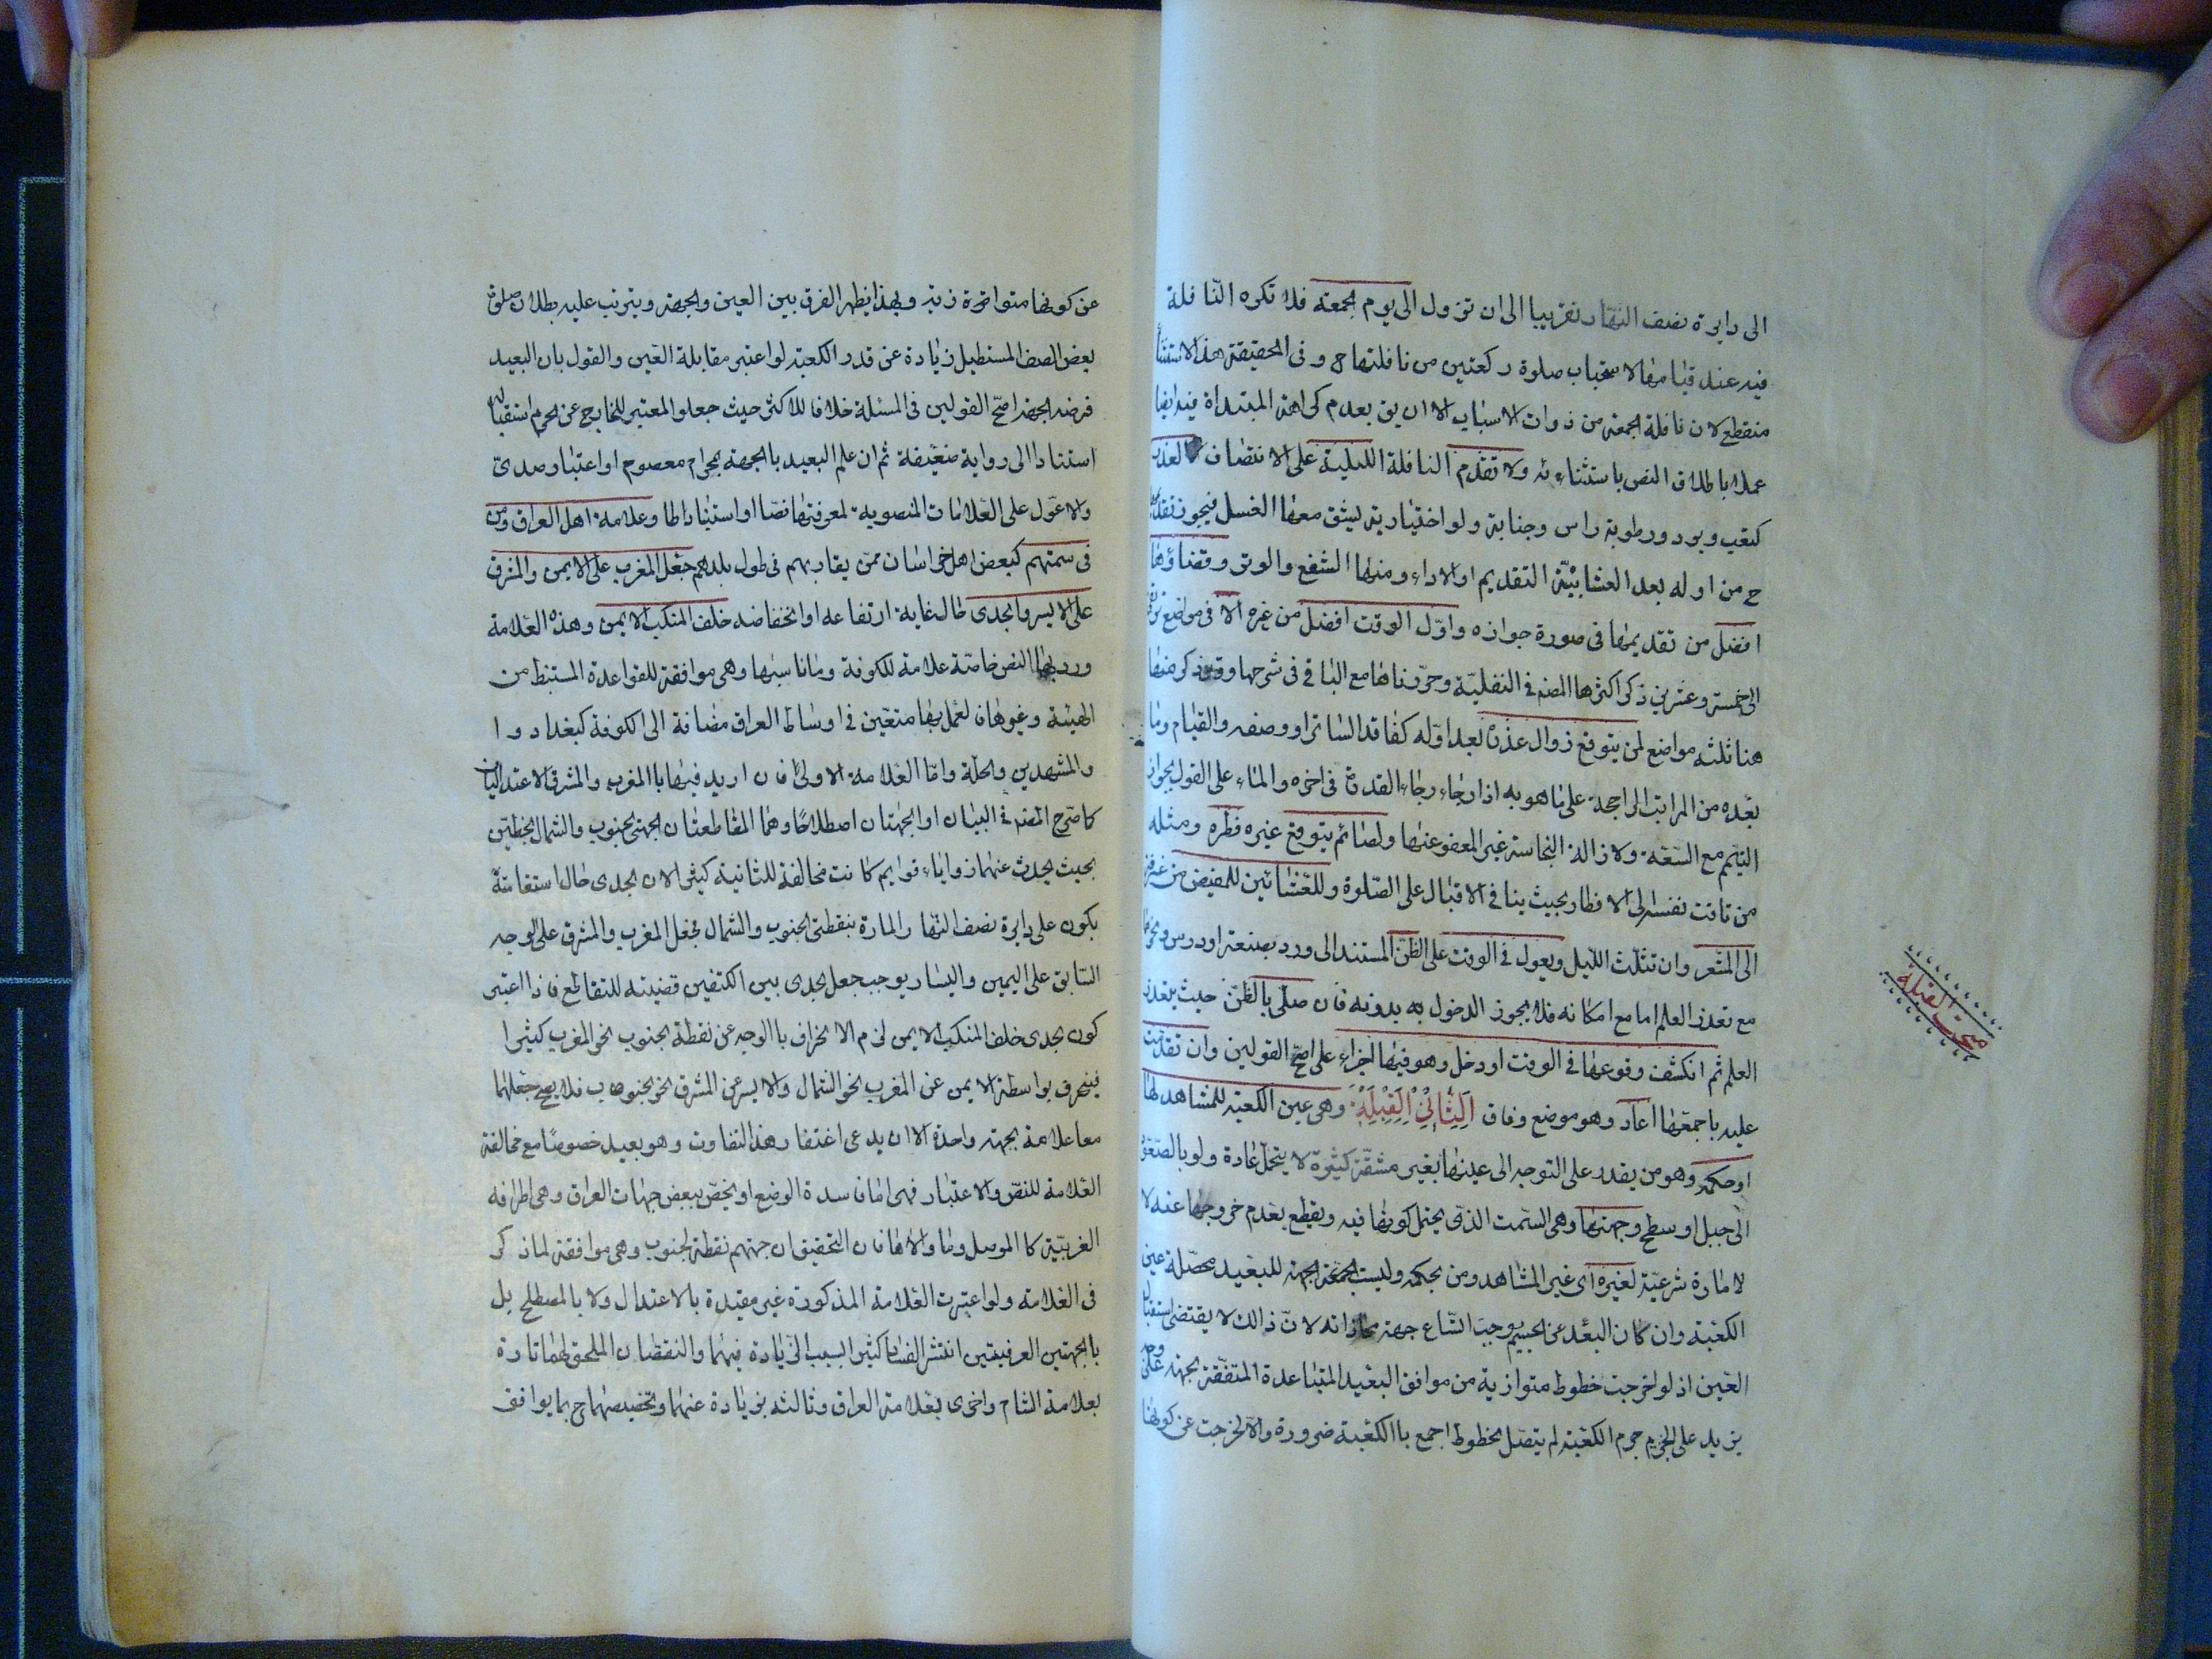 الى دايرة نصف النهار تقريبا الى ان تزول الى يوم الجمعة فلا تكره النافلة
فيه عند قيامها لاستحباب صلوة ركعتين من نافلتها ح وفى الحقيقة هذا الاستثناء
منقطع لان نافلة الجمعة من ذوات الاسباب الا ان يق بعدم كراهة المبتداة فيه ايضا
عملا باطلاق النص باستثنائه ولا تقدم النافلة الليلية على الانتصاف الا لعذر
كتعب وبرد ورطوبة راس وجنابة ولو اختيارية يشق معها الغسل فيجوز تقديمها
ح من اوله بعد العشا بنية التقديم او الاداء ومنها الشفع والوتر وقضاؤها
افضل من تقديمها فى صورة جوازه واول الوقت افضل من غيره الا فى مواضع ترتقى
الى خمسة وعشرين ذكر اكثرها المصنف فى النفلية وحررناها مع الباقى فى شرحها وقد ذكر منها
هنا ثلثه مواضع لمن يتوقع زوال عذره بعد اوله كفاقد الساتر او وصفه والقيام وما
بعده من المراتب الراجحة على ما هو به اذا رجاء القدرة فى اخره والماء على القول بجواز
التيمم مع السعة ولازالة النجاسة غير المعفو عنها ولصائم يتوقع غيره فطره ومثله
من تاقت نفسه الى الافطار بحيث ينافى الاقبال على الصلوة وللعشائين للمفيض من عرفة
الى المشعر وان تثلث الليل ويعول فى الوقت على الظن المستند الى ورد بصنعة او درس ونحوهما
مع تعذر العلم اما مع امكانه فلا يجوز الدخول به بدونه فان صلى بالظن حيث يتعذر
العلم ثم انكشف وقوعها فى الوقت او دخل وهو فيها اجزاء على اصح القولين وان تقدمت
عليه باجمعها اعاد وهو موضع وفاق الثانى القبلة وهى عين الكعبة للمشاهد لها
او حكمه وهو من يقدر على التوجه الى عينها بغير مشقة كثيرة لا يتحمل عادة ولو بالصعود
الى جبل او سطح وجهتها وهى السمت الذى يحتمل كونها فيه ويقطع بعدم خروجها عنه لا
لامارة شرعية لغيره اى غير المشاهد ومن بحكمه وليست الجهة للبعيد محصلة عين
الكعبة وان كان البعد عن الجسم يوجب اتساع جهة محاذاته لان ذلك لا يقتضى استقبال
العين اذ لو اخرجت خطوط متوازية من مواقف البعيد المتباعدة المتفقة الجهة على وجه
يزيد على جرم الكعبة لم يتصل الخطوط اجمع بالكعبة ضرورة والا لخرجت عن كونها
مبحث القبلة
عن كونها متوازية وبهذا يظهر الفرق بين العين والجهة ويترتب عليه بطلان صلوة
بعض الصف المستطيل زيادة عن قدر الكعبة لو اعتبر مقابلة العين والقول بان البعيد
فرضه الجهة اصح القولين فى المسئلة خلافا للاكثر حيث جعلوا المعتبر للخارج عن الحرم استقباله
استنادا الى رواية ضعيفة ثم ان علم البعيد بالجهة بمحراب معصوم او اعتبار رصدى
والا عول على العلامات المنصوبة لمعرفتها نصا او استنباطا وعلامة اهل العراق ومن
فى سمتهم كبعض اهل خراسان ممن يقاربهم فى طول بلدهم جعل المغرب على الايمن والمشرق
على الايسر والجدى حال غاية ارتفاعه او انخفاضه خلف المنكب الايمن وهذه العلامة
ورد بها النص خاصة علامة للكوفة وما ناسبها وهى موافقة للقواعدة المستنبط من
الهيئة وغيرها فالعمل بها متعين فى اوساط العراق مضافة الى الكوفة كبغداد وا
والمشهدين والحلة واما العلامة الاولى فان اريد فيها بالمغرب والمشرق الاعتداليان
كما صرح المصنف فى البيان او الجهتان اصطلاحا وهما المقاطعتان لجهتى الجنوب والشمال بخطين
بحيث يحدث عنهما زوايا قوايم كانت مخالفة للثانية كثيرا لان الجدى حال استقامته
يكون على دايرة نصف النهار المارة بنقطتى الجنوب والشمال فجعل المغرب والمشرق على الوجه
السابق على اليمين واليسار يوجب جعل الجدى بين الكتفين قضيته للتقاطع فاذا اعتبر
كون الجدى خلف المنكب الايمن لزم الانحراف بالوجه عن نقطة الجنوب نحو المغرب كثيرا
فينحرف بواسطة الايمن عن المغرب نحو الشمال والايسر عن المشرق نحو الجنوب فلا يصح جعلهما
معا علامة لجهة واحدة الا ان يدعى اغتفار هذا التفاوت وهو بعيد خصوصا مع مخالفة
العلامة للنص والاعتبار فهى اما فاسدة الوضع او يختص ببعض جهات العراق وهى اطرافه
الغربية كالموصل وما والاها فان التحقيق ان جهتهم نقطة الجنوب وهى موافقة لما ذكر
فى العلامة ولو اعتبرت العلامة المذكورة غير مقيدة بالاعتدال ولا بالمصطلح بل
بالجهتين العرفيتين انتشر الفساد كثيرا بسبب الزيادة فيهما والنقصان الملحق لهما تارة
بعلامة الشام واخرى بعلامة العراق وثالثه بزيادة عنهما وتخصيصهما ح بما يوافق